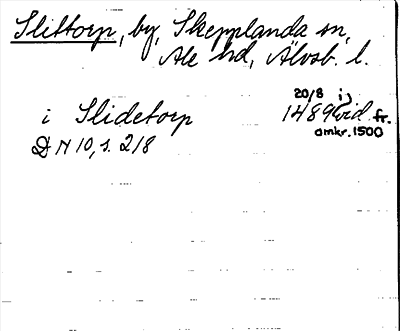 Slittorp, by, Skepplanda sn,
Ale hd, Älvsb. l.
i Slidetorp 20/8 1489 vid. fr.
omkr. 1500
DN 10, s. 218